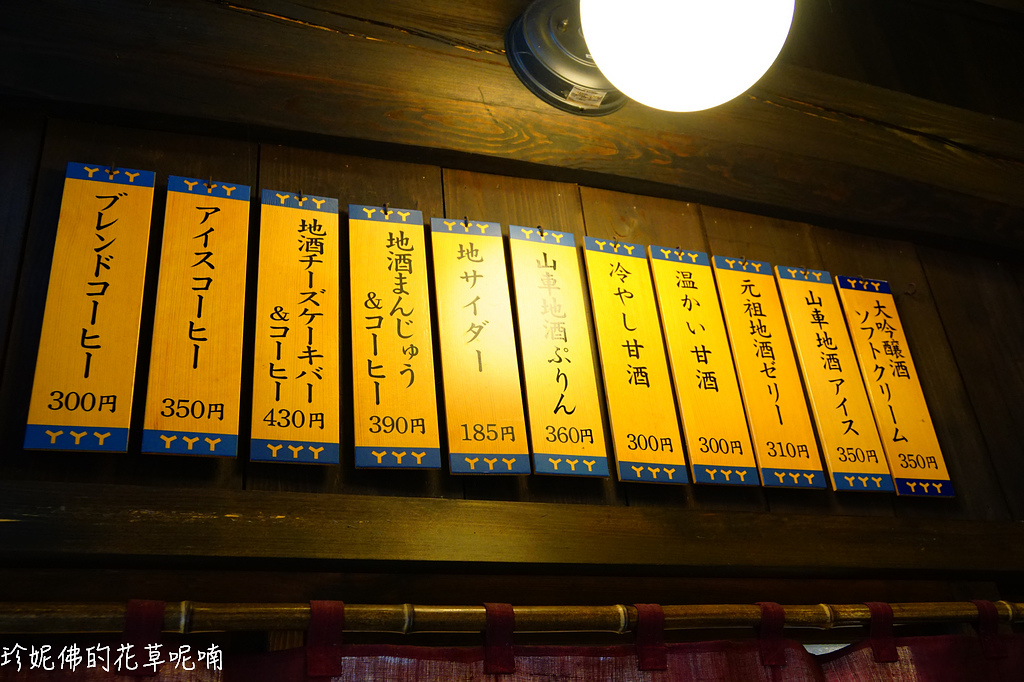 ブレンドコーヒー
300円
アイスコーヒー
350円
地酒チーズケーキバー
&コーヒー
430円
地酒まんじゅう
&コーヒー
390円
地サイダー
185円
山車地酒ぷりん
360円
冷やし甘酒
300円
温かい甘酒
300円
元祖地酒ゼリー
310円
山車地酒アイス
350円
大吟醸酒
ソフトクリーム
350円
珍妮佛的花草呢喃